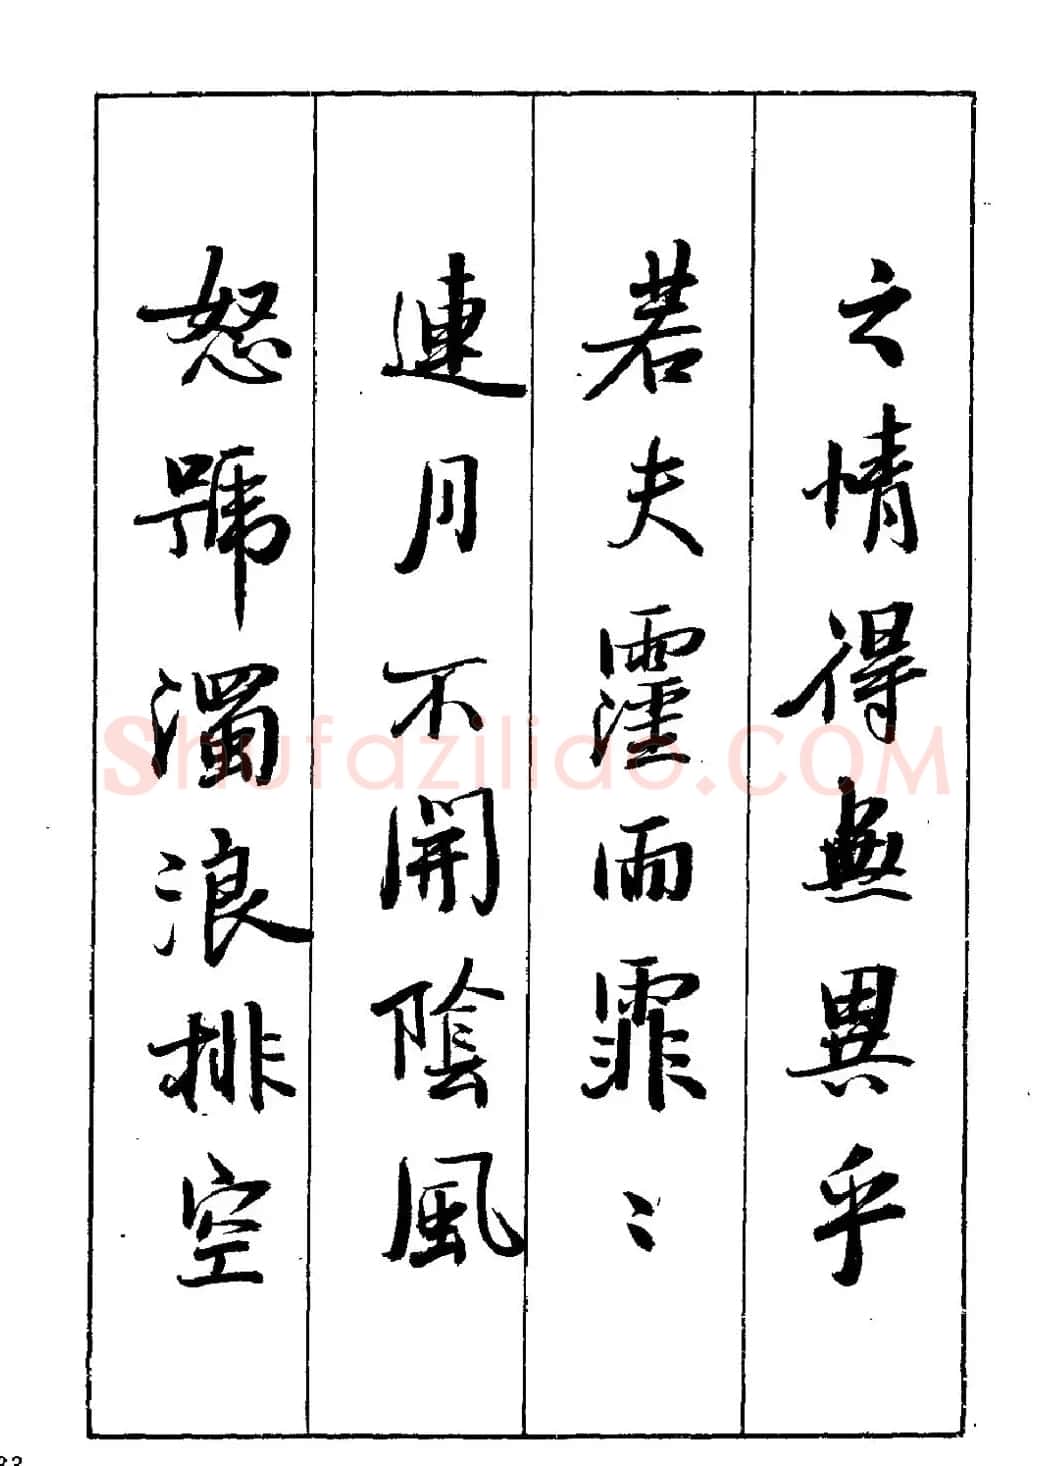 之情得無異乎
若夫霪雨霏〻
連月不開陰風
怒號濁浪排空
Shufaziliao.COM
33